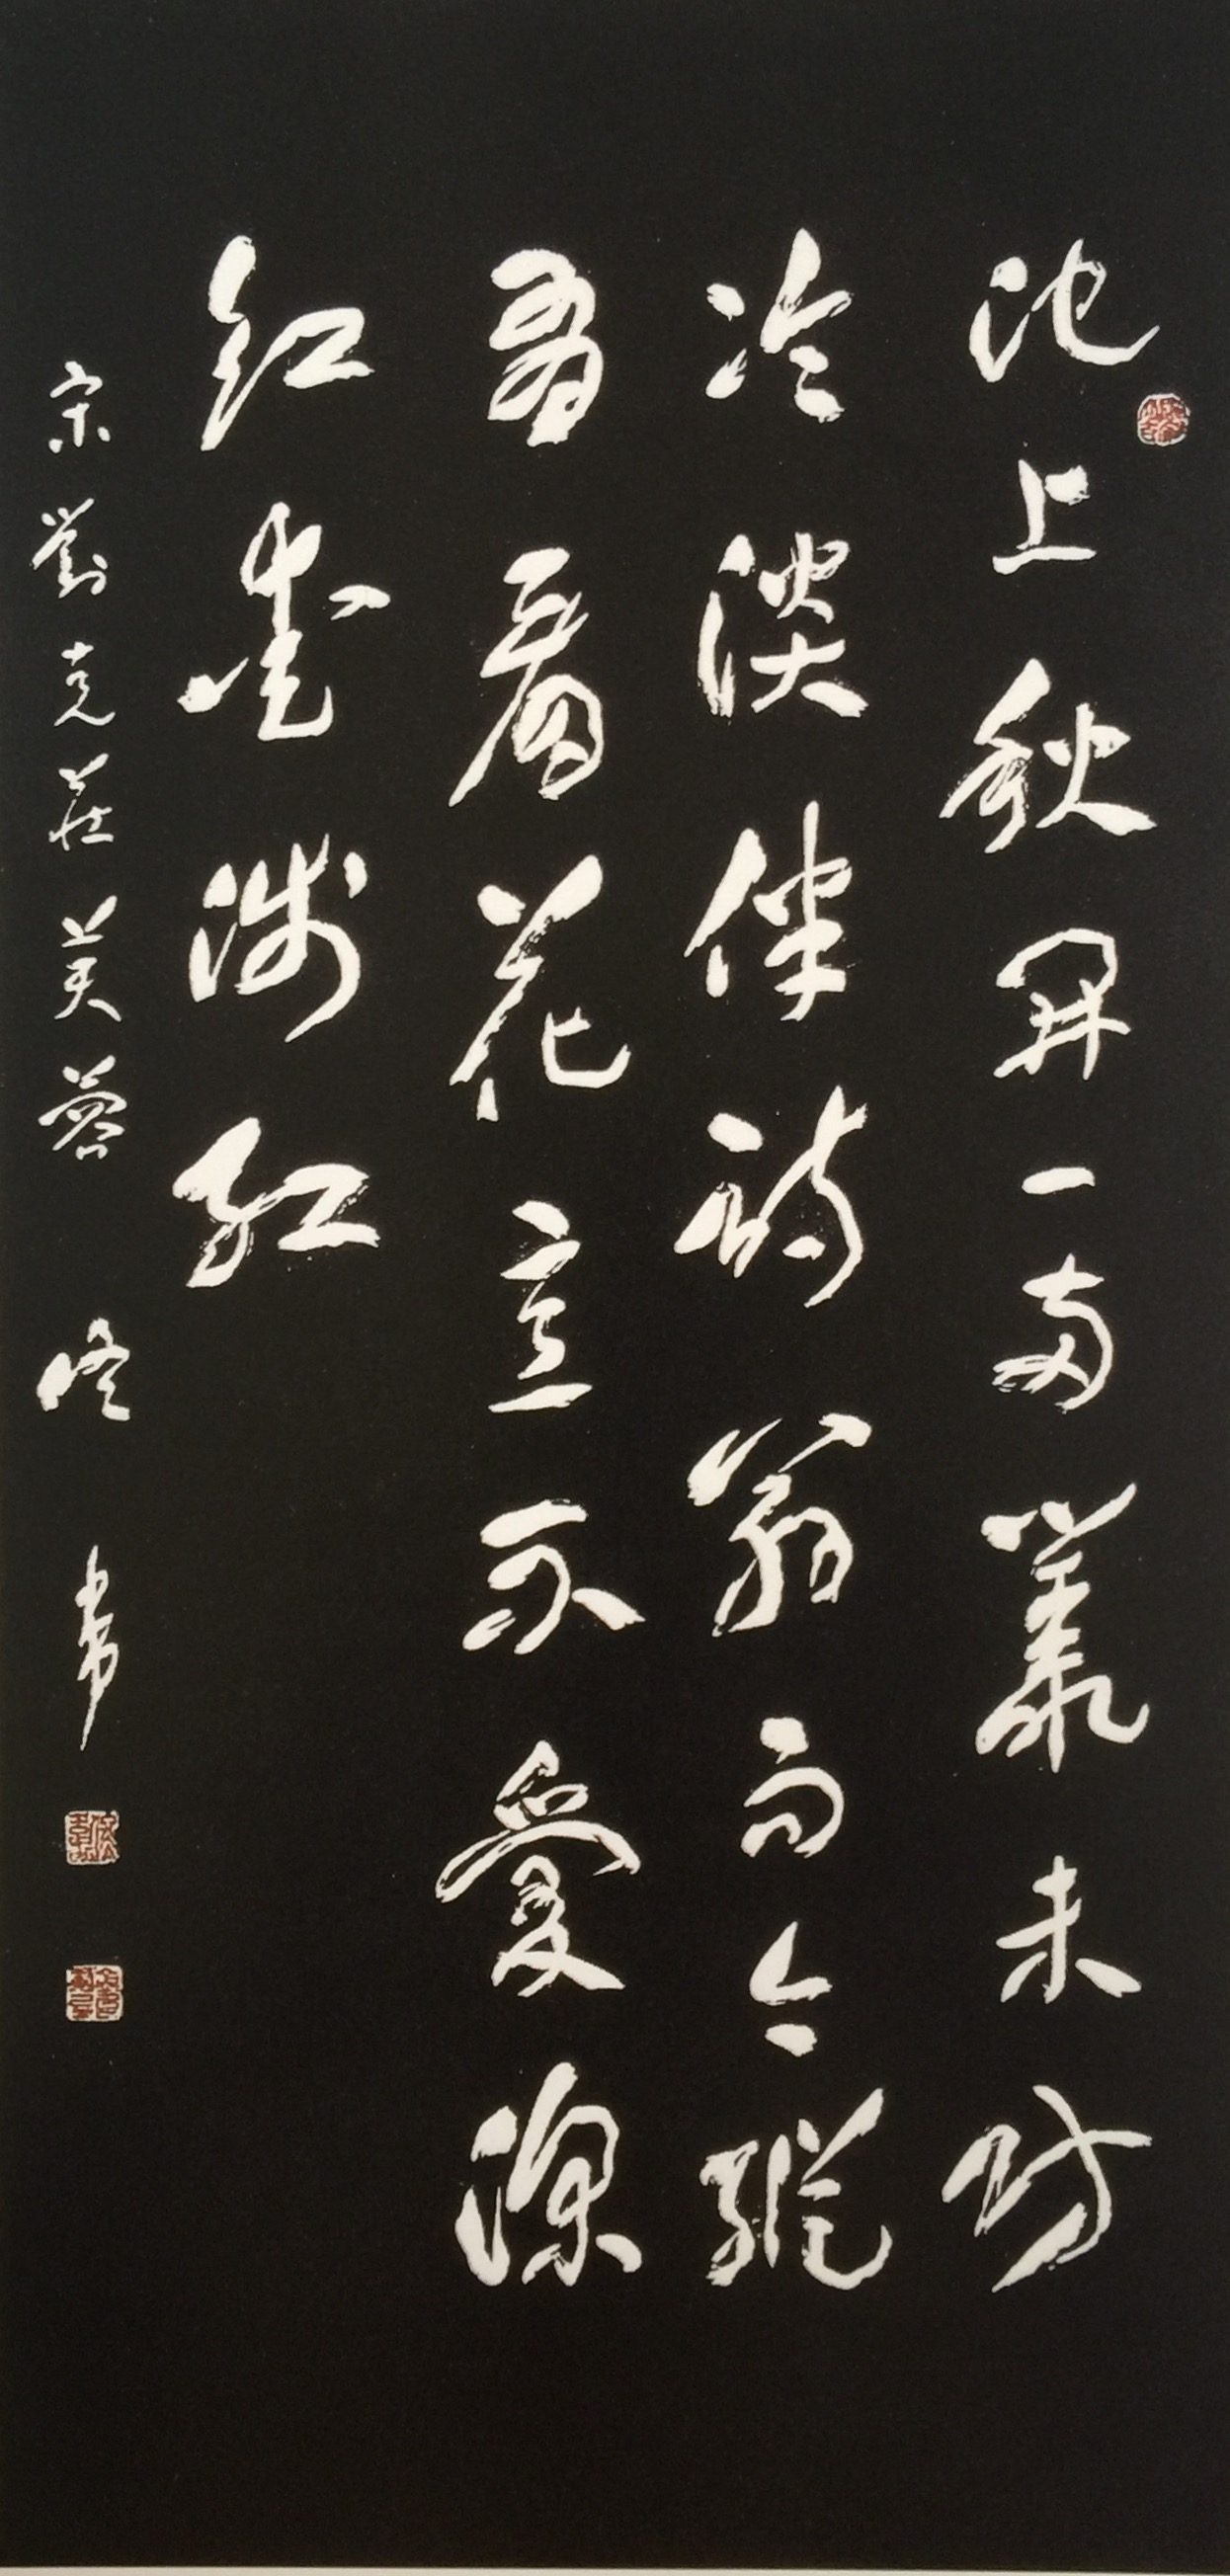 池上秋開一兩叢未妨
冷淡伴詩翁而今縱
有看花意不愛深
紅愛淺紅
宋劉克莊芙蓉 佟韋